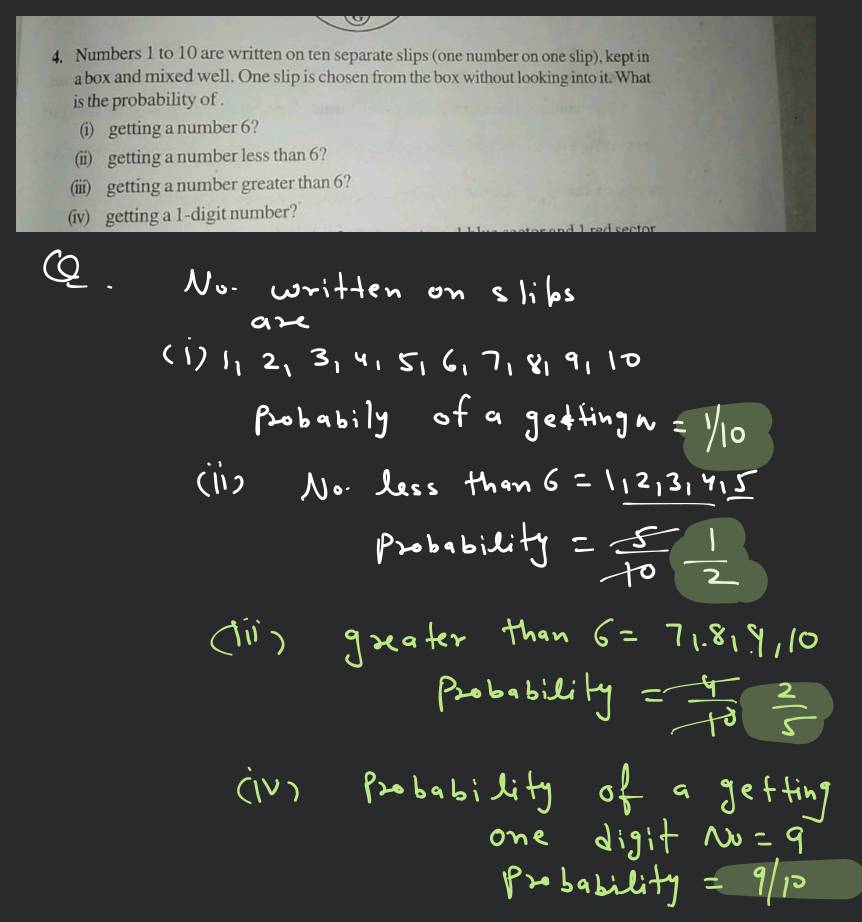 4. Numbers 1 to 10 are written on ten separate slips (one number on one slip), kept in
a box and mixed well. One slip is chosen from the box without looking into it. What
is the probability of .
(i) getting a number 6?
(ii) getting a number less than 6?
(iii) getting a number greater than 6?
(iv) getting a 1-digit number?
and 1 red sector
Q. No. written on slibs
are
(i) 1, 2, 3, 4, 5, 6, 7, 8, 9, 10
Probabily of a getting = 1/10
(ii) No. less than 6 = 1, 2, 3, 4, 5
Probability = 5/10 1/2
(iii) greater than 6 = 7, 8, 9, 10
Probability = 4/10 2/5
(iv) Probability of a getting
one digit No = 9
Probability = 9/10